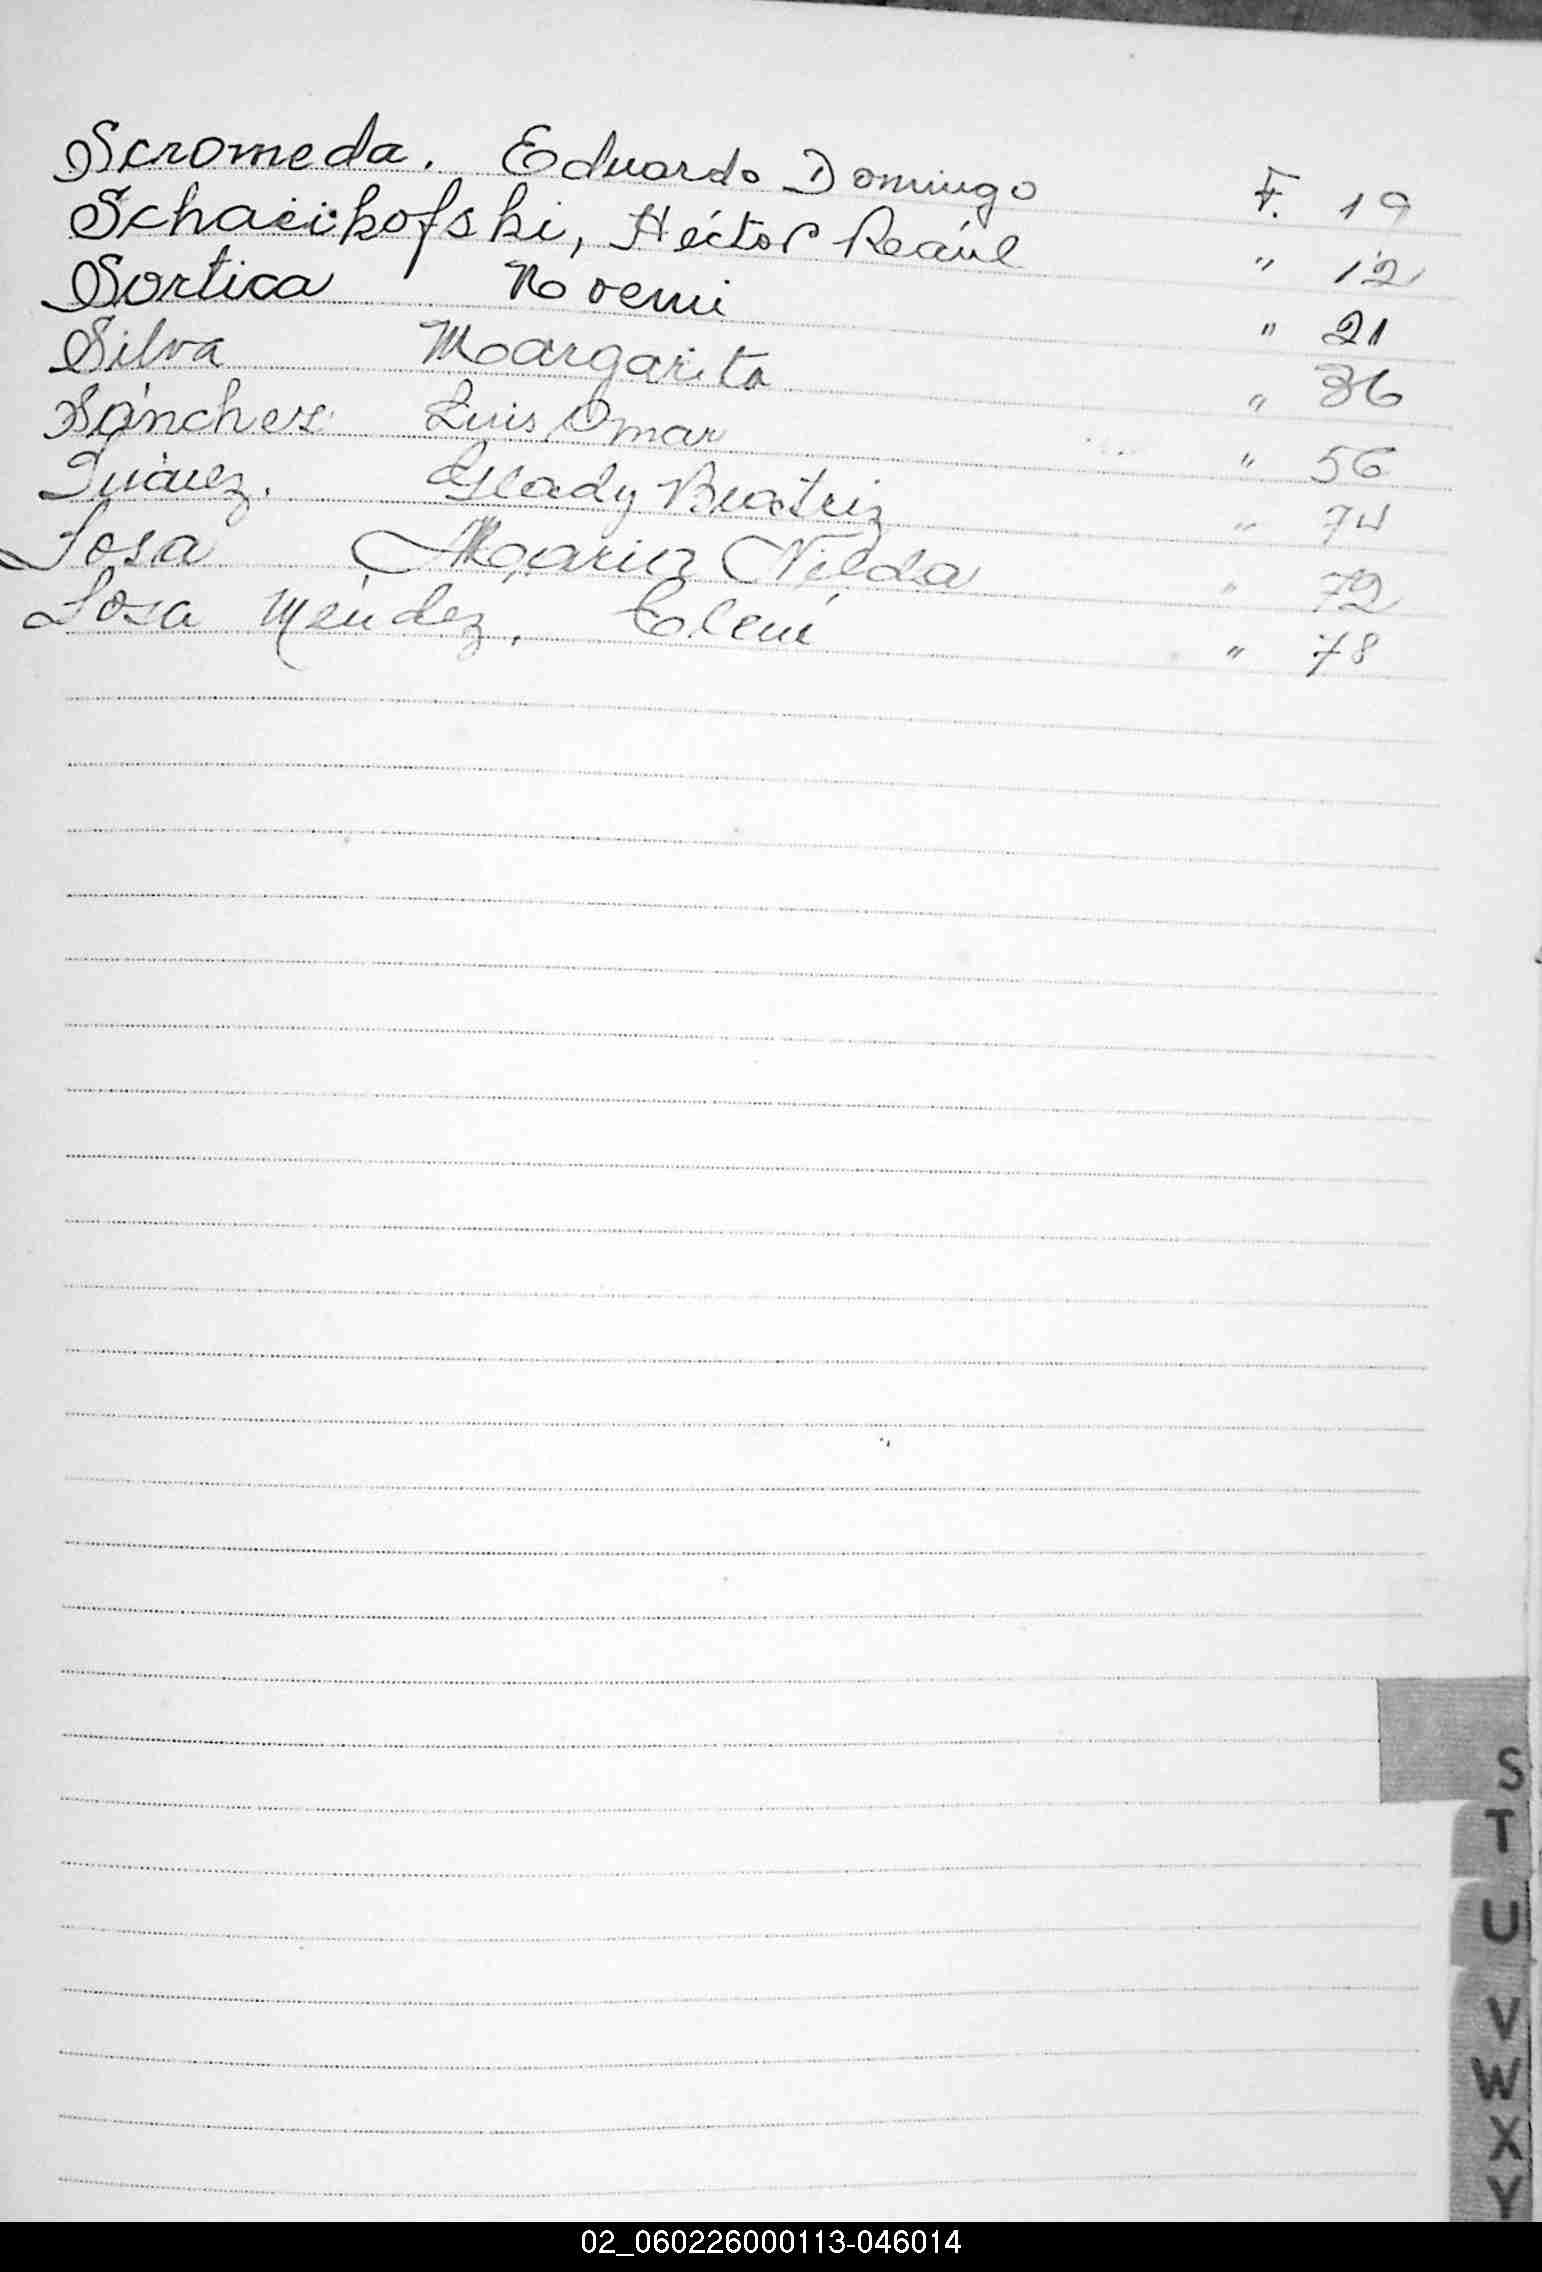 Scromeda. Eduardo Domingo F. 19
Schaiikofski, Héctor Raúl " 12
Sortica Noemi " 21
Silva Margarita " 36
Sánchez Luis Omar " 56
Suárez. Glady Beatriz " 74
Sosa Maria Nilda " 72
Sosa Méndez, Elení " 78
S
T
U
V
W
X
Y
02_060226000113-046014